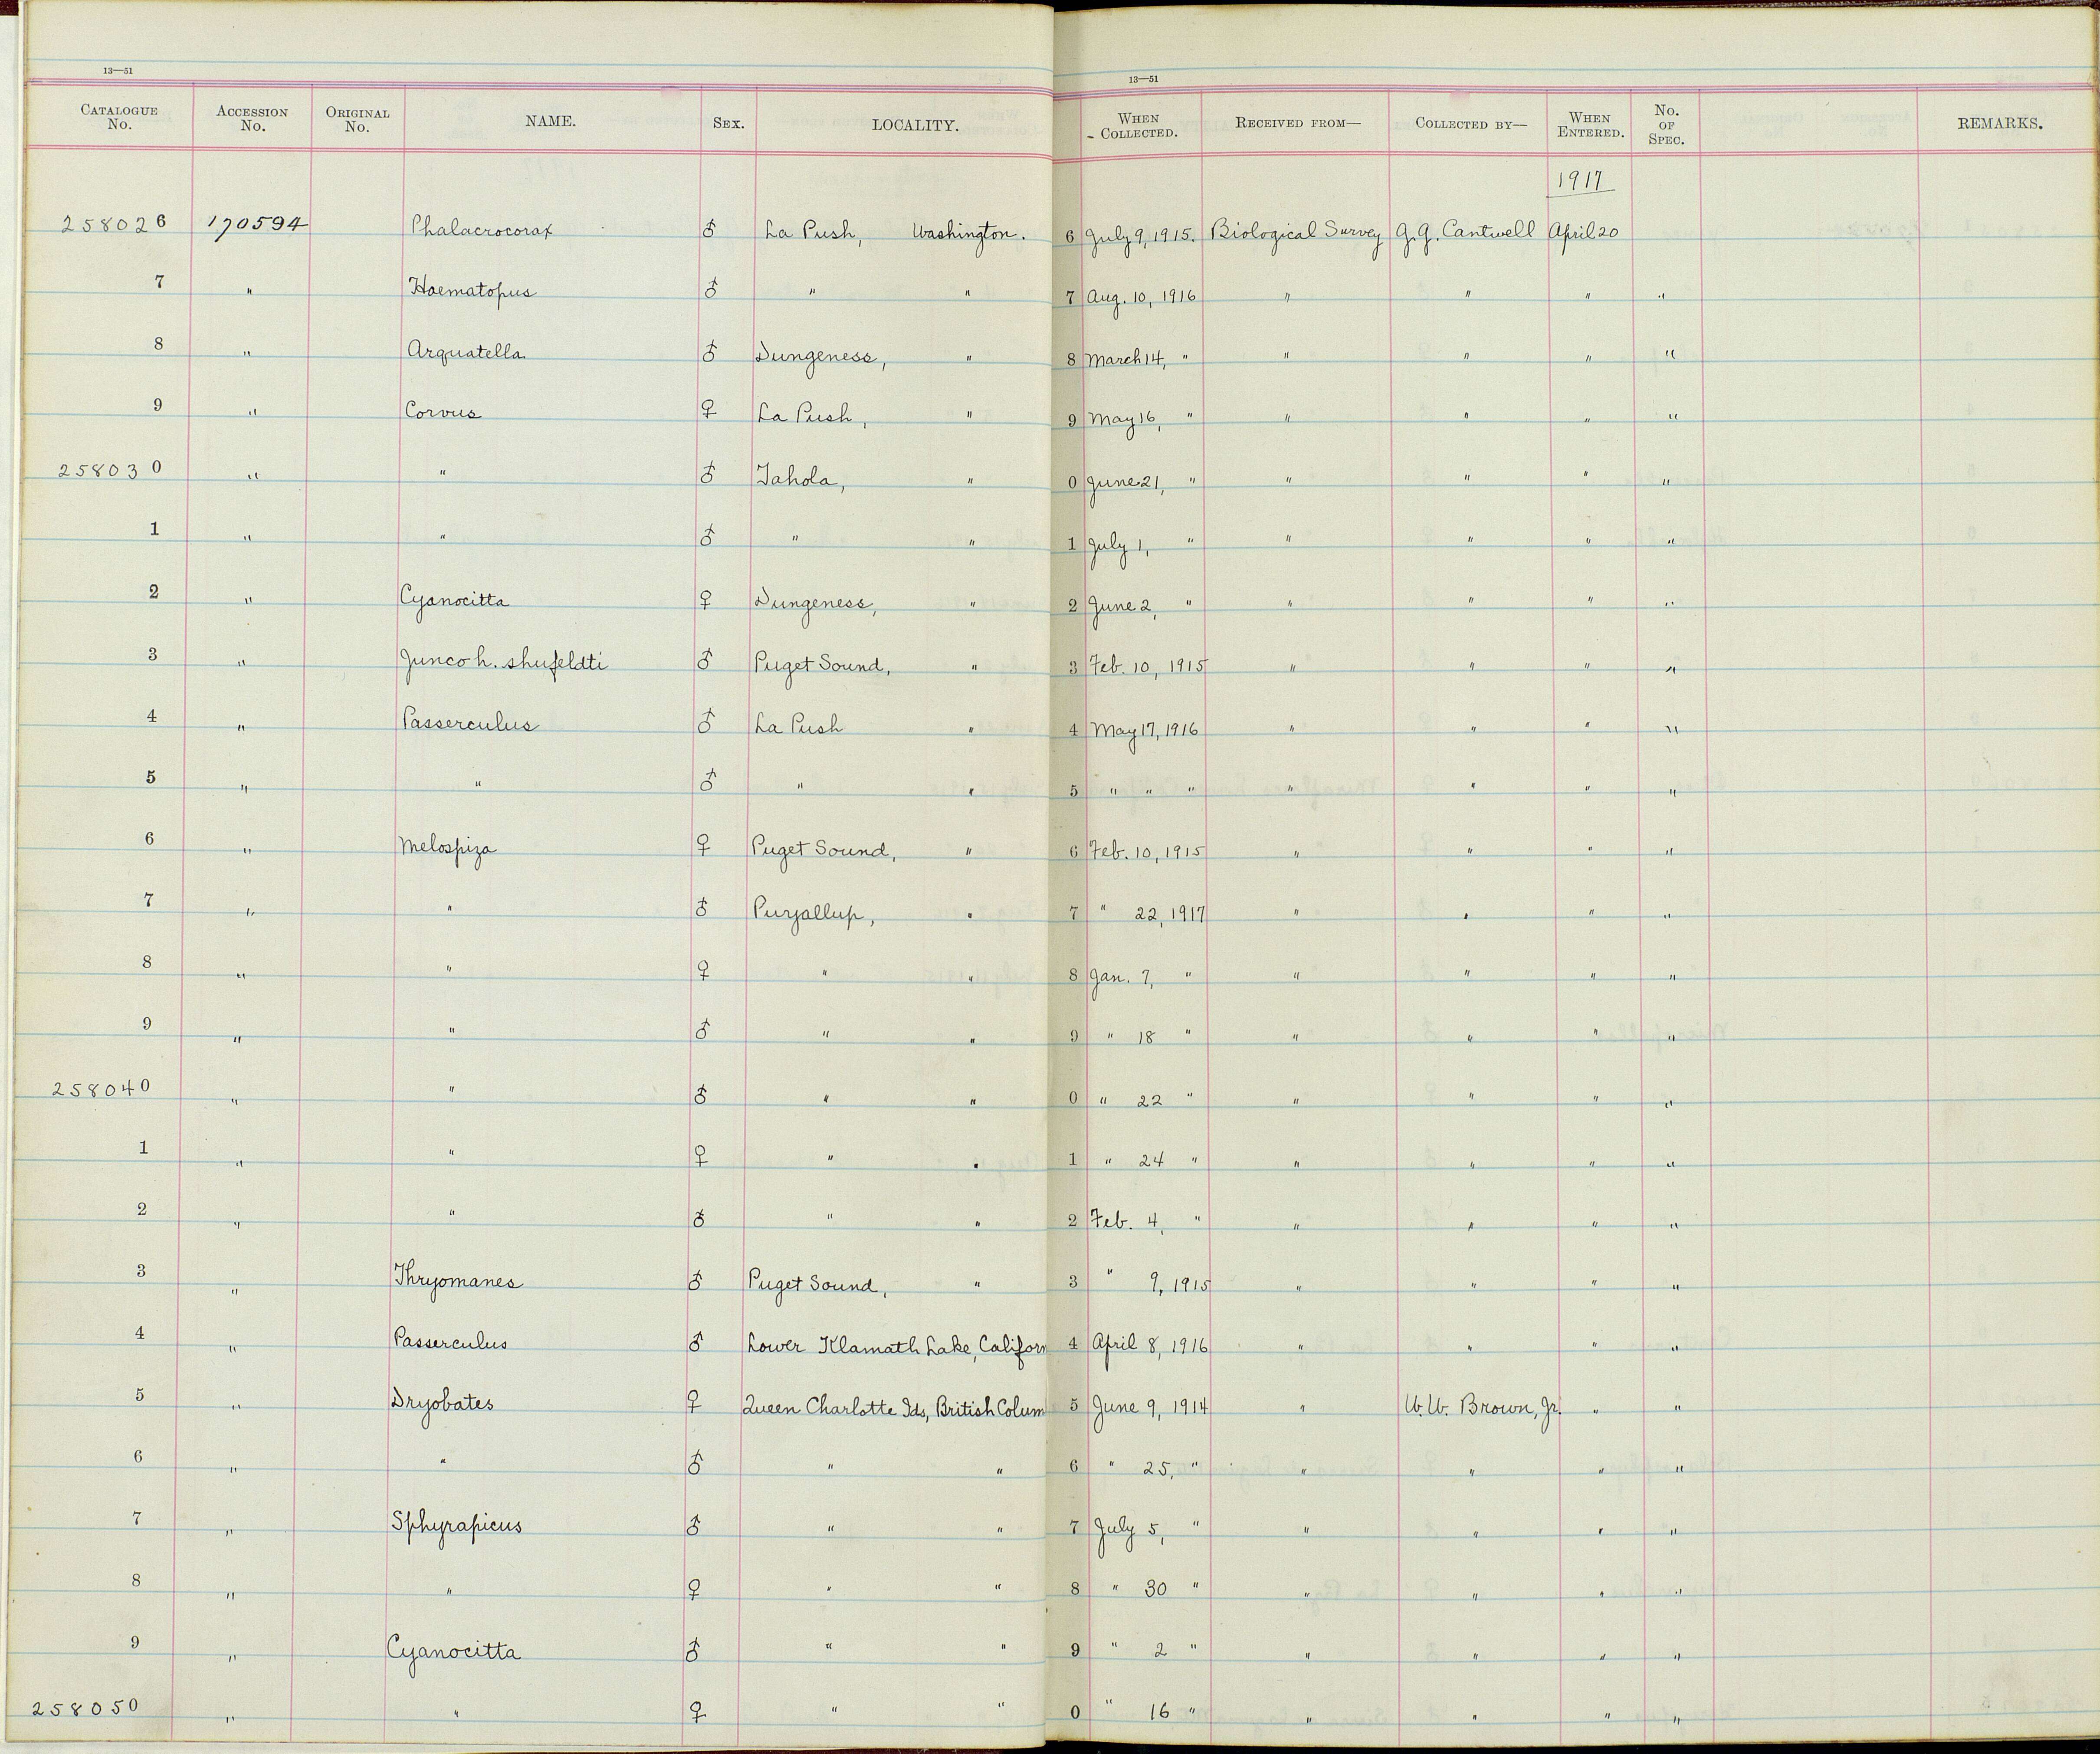 13—51
13—51
CATALOGUE No. ACCESSION No. ORIGINAL No. NAME. SEX. LOCALITY. WHEN COLLECTED. RECEIVED FROM— COLLECTED BY— WHEN ENTERED. No. OF SPEC. REMARKS.
1917
258026 170594 Phalacrocorax ♂ La Push, Washington. 6 July 9, 1915. Biological Survey G.G. Cantwell April 20
7 " Haematopus ♂ " " 7 Aug. 10, 1916 " " " "
8 " Arquatella ♂ Dungeness, " 8 March 14, " " " " "
9 " Corvus ♀ La Push, " 9 May 16, " " " " "
258030 " " ♂ Tahola, " 0 June 21, " " " " "
1 " " ♂ " " 1 July 1, " " " " "
2 " Cyanocitta ♀ Dungeness, " 2 June 2, " " " " "
3 " Junco h. shufeldti ♂ Puget Sound, " 3 Feb. 10, 1915 " " " "
4 " Passerculus ♂ La Push " 4 May 17, 1916 " " " "
5 " " ♂ " " 5 " " " " " " "
6 " Melospiza ♀ Puget Sound, " 6 Feb. 10, 1915 " " " "
7 " " ♂ Puryallup, " 7 " 22, 1917 " " " "
8 " " ♀ " " 8 Jan. 7, " " " " "
9 " " ♂ " " 9 " 18 " " " " "
258040 " " ♂ " " 0 " 22 " " " " "
1 " " ♀ " " 1 " 24 " " " " "
2 " " ♂ " " 2 Feb. 4, " " " " "
3 " Thryomanes ♂ Puget Sound, " 3 " 9, 1915 " " " "
4 " Passerculus ♂ Lower Klamath Lake, Californ 4 April 8, 1916 " " " "
5 " Dryobates ♀ Queen Charlotte Ids, British Colum 5 June 9, 1914 " W.W. Brown, Jr. " "
6 " " ♂ " " 6 " 25, " " " " "
7 " Sphyrapicus ♂ " " 7 July 5, " " " " "
8 " " ♀ " " 8 " 30 " " " " "
9 " Cyanocitta ♂ " " 9 " 2 " " " " "
258050 " " ♀ " " 0 " 16 " " " " "